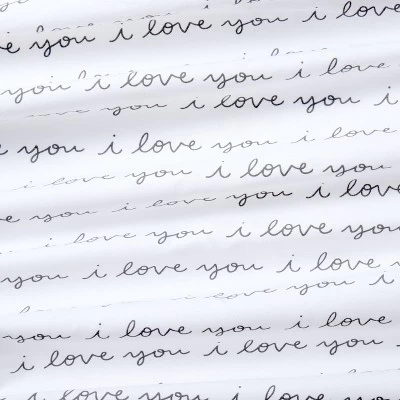 i love
e you i love you i love
you i love you i love
you i love you i
you i love you i love
i love you i love you
e you i love you i love
i love you i love you
you i love you i love
i love you i love you i
you i love you i love
i love you i love you
i love you i love you